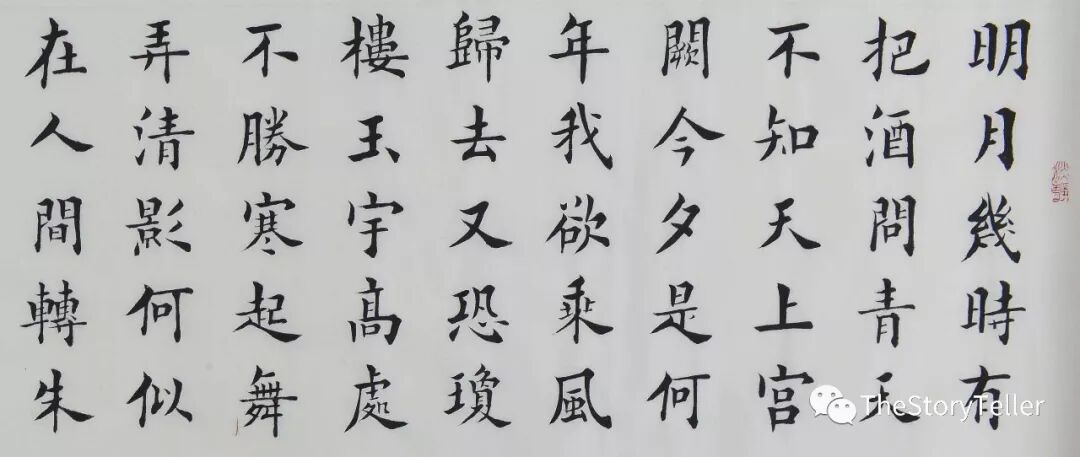 明月幾時有
把酒問青天
不知天上宮
闕今夕是何
年我欲乘風
歸去又恐瓊
樓玉宇高處
不勝寒起舞
弄清影何似
在人間轉朱
TheStoryTeller